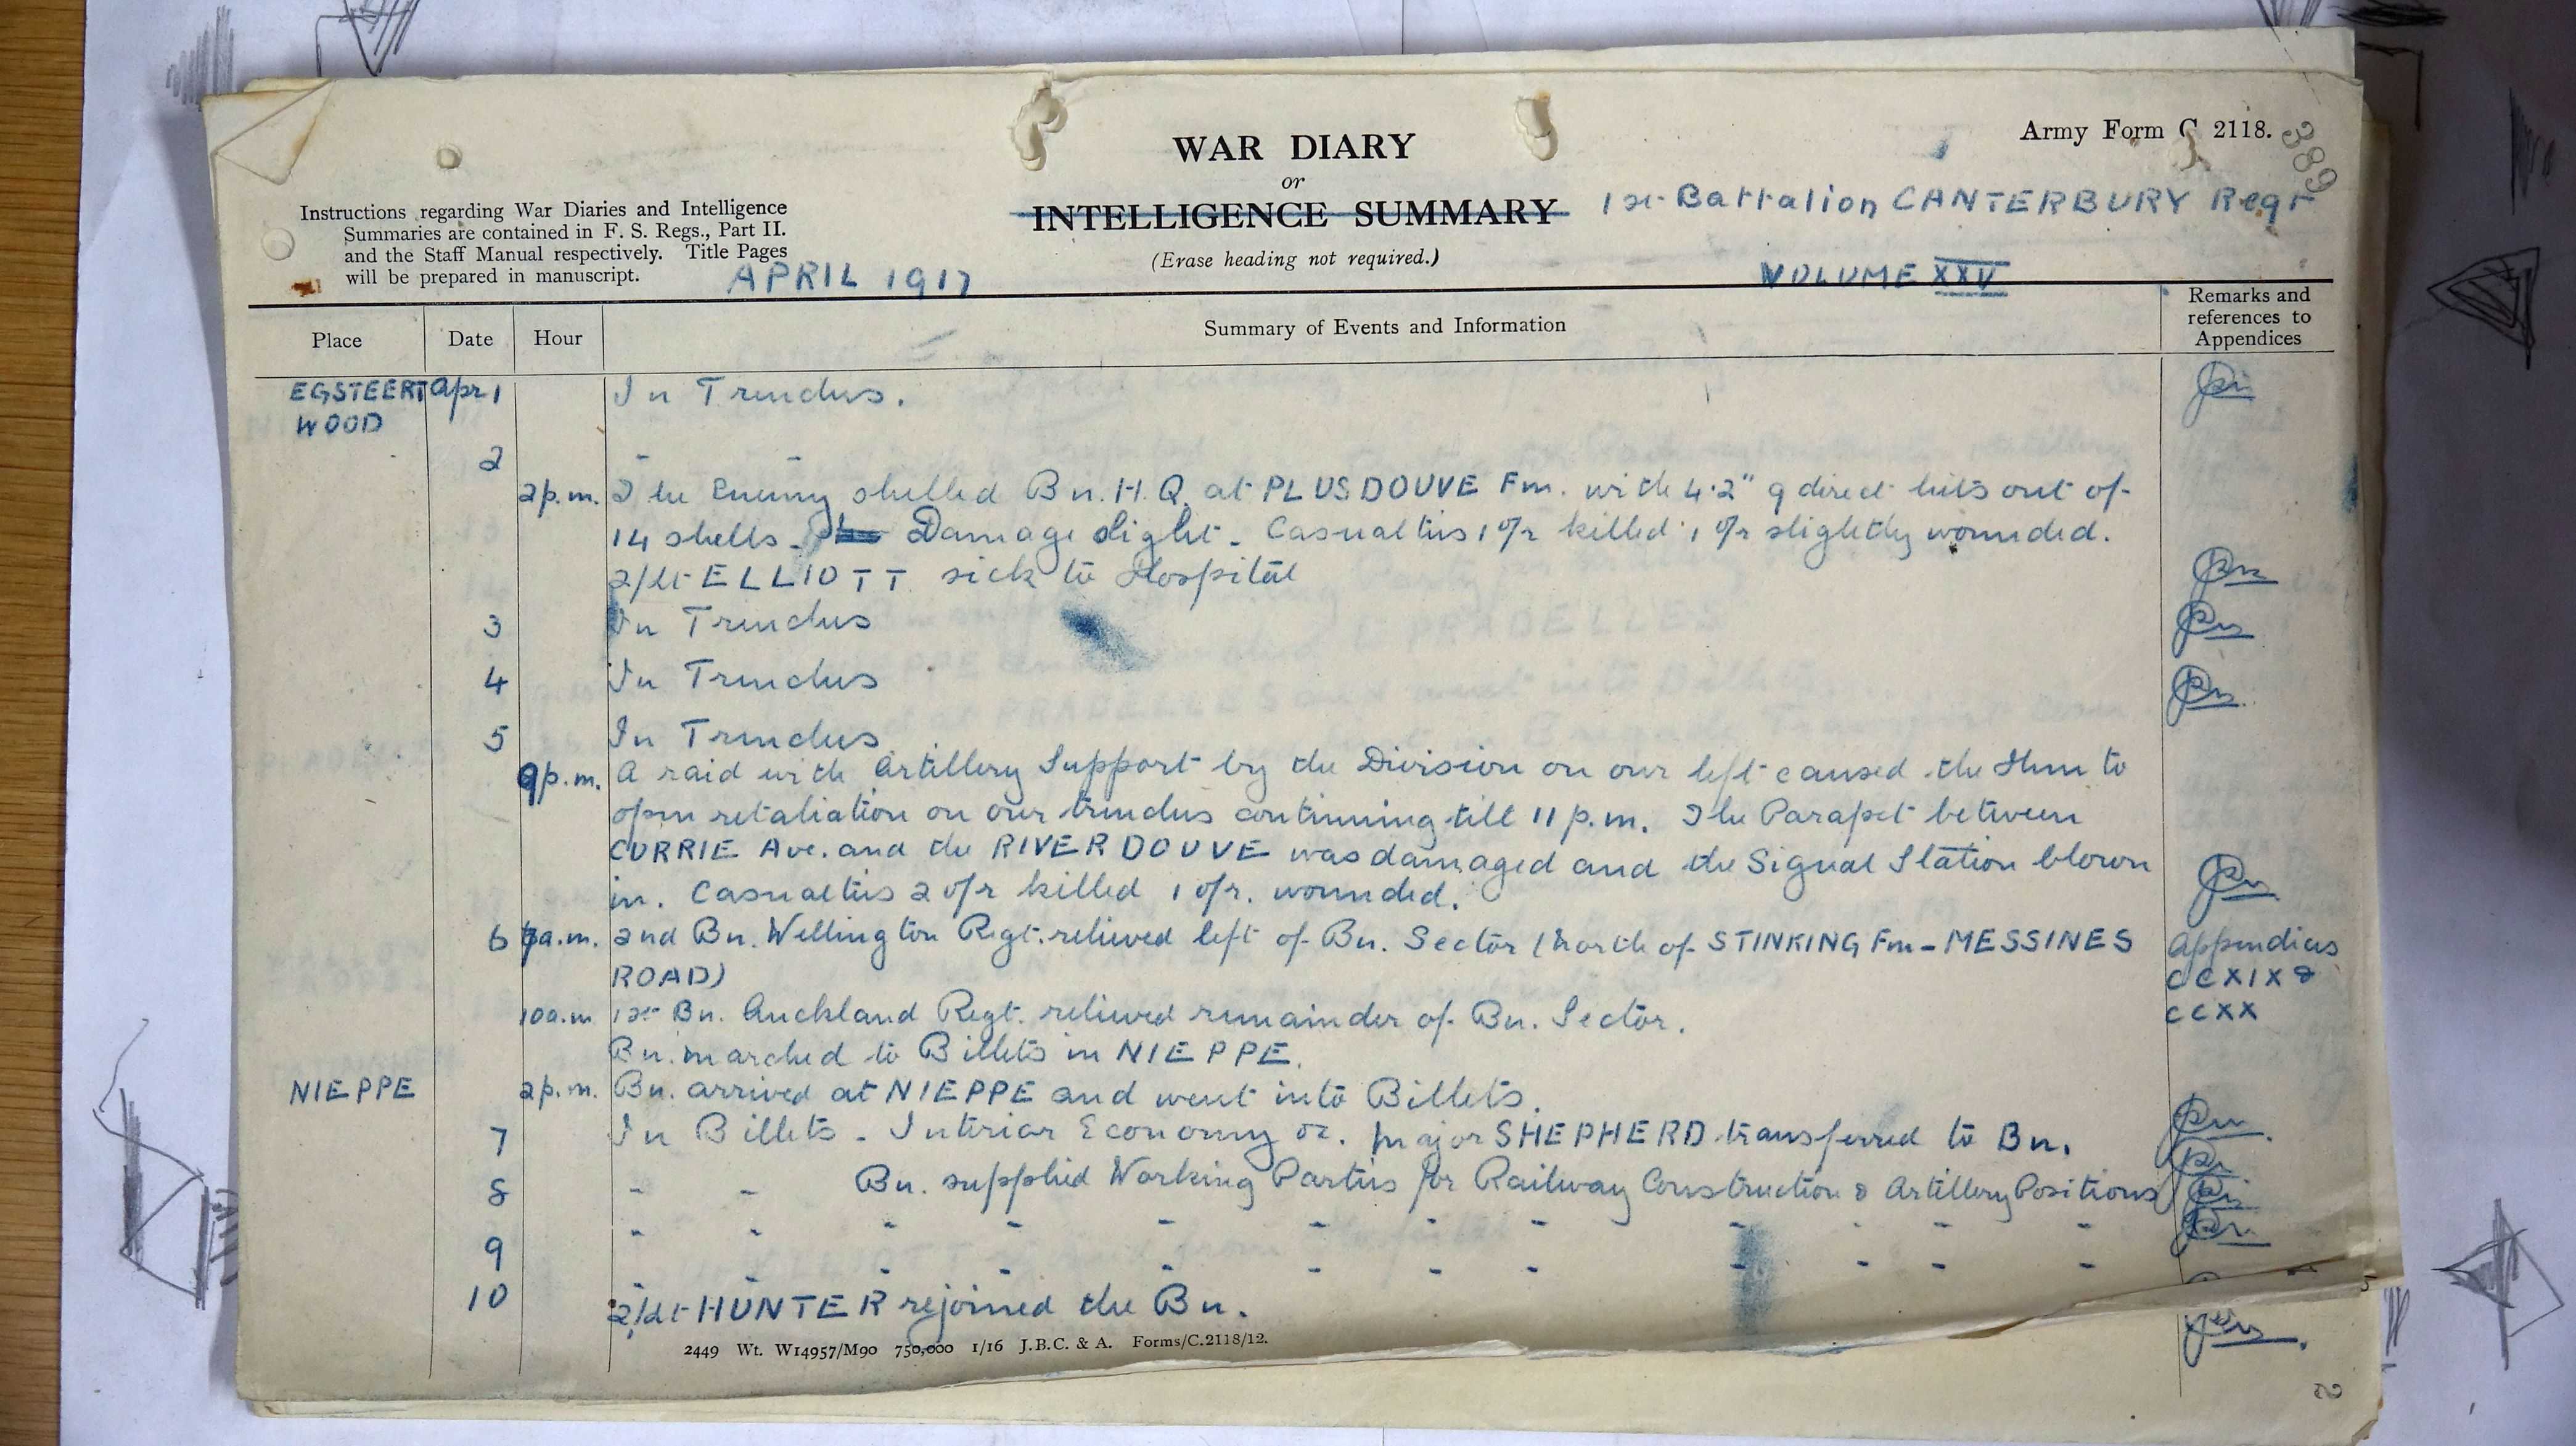 Army Form C 2118.
389
WAR DIARY
or
INTELLIGENCE SUMMARY
(Erase heading not required.)
Instructions regarding War Diaries and Intelligence
Summaries are contained in F. S. Regs., Part II.
and the Staff Manual respectively. Title Pages
will be prepared in manuscript.
1st Battalion CANTERBURY Regt
APRIL 1917
VOLUME XXV
Place Date Hour Summary of Events and Information Remarks and references to Appendices
EGSTEERT Apr 1 In Trenches.
WOOD
2 " "
2 p.m. The Enemy shelled Bn. H.Q. at PLUSDOUVE Fm. with 4.2" 9 direct hits out of
14 shells. Damage slight. Casualties 1 o/r killed 1 o/r slightly wounded.
2/Lt ELLIOTT sick to Hospital
3 In Trenches
4 In Trenches
5 In Trenches
9 p.m. A raid with Artillery Support by the Division on our left caused the Hun to
open retaliation on our trenches continuing till 11 p.m. The Parapet between
CURRIE Ave. and the RIVER DOUVE was damaged and the Signal Station blown
in. Casualties 2 o/r killed 1 o/r. wounded.
6 a.m. 2nd Bn. Wellington Regt. relieved left of Bn. Sector (North of STINKING Fm - MESSINES Appendices
ROAD) CCXIX &
10 a.m 1st Bn. Auckland Regt. relieved remainder of Bn. Sector. CCXX
Bn. marched to Billets in NIEPPE.
NIEPPE 2 p.m. Bn. arrived at NIEPPE and went into Billets.
7 In Billets - Interior Economy &c. Major SHEPHERD transferred to Bn.
8 " " Bn. supplied Working Parties for Railway Construction & Artillery Positions
9 " " " " " " " " " " " "
10 " " " " " " " " " " " "
2/Lt HUNTER rejoined the Bn.
2449 Wt. W14957/M90 750,000 1/16 J.B.C. & A. Forms/C.2118/12.